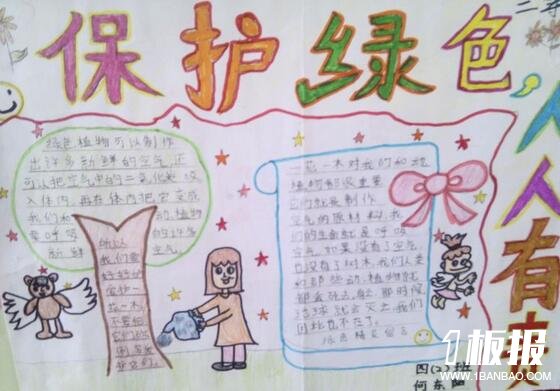 保护绿色,人人有
二
绿色植物可以制作
出许多新鲜的空气,还
可以把空气中的二氧化碳吸
入体内,再在体内把它变成
我们和动植物
需呼吸的许多
新鲜空气。
所以
我们要
好好的
爱护一
花一木,
不要把
它们砍
倒
一花一木对我们和动
植物都很重要
它们就是制作
空气的原材料,我
们的生命就是呼吸
空气,如果没有了空气
也没有了树木,我们人类
和那些动、植物就
都会死去,那时候
地球就会灭亡,我们
因此也不在了。
四(2)班
何
1板报
WWW.1BANBAO.COM